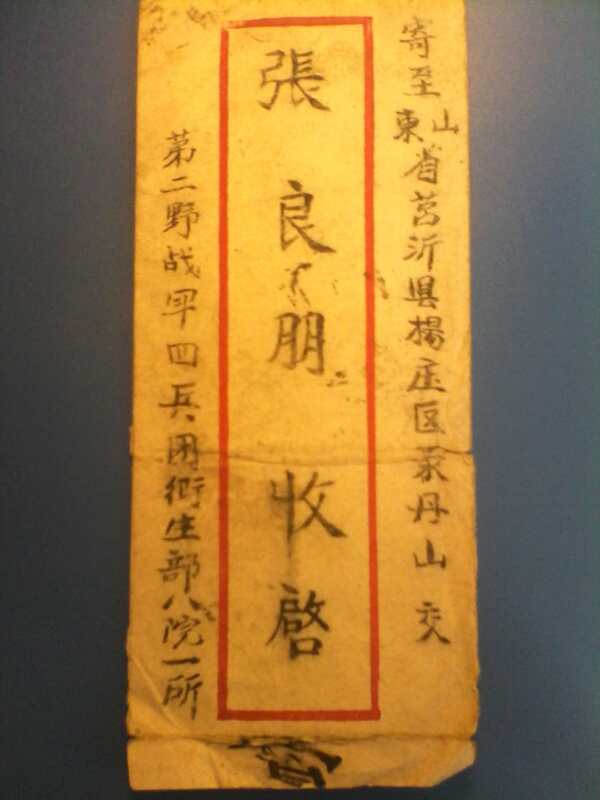 寄至
山東省莒沂县楊庄区
丹山 交
張良朋 收啓
第二野战军四兵团衛生部八院一所